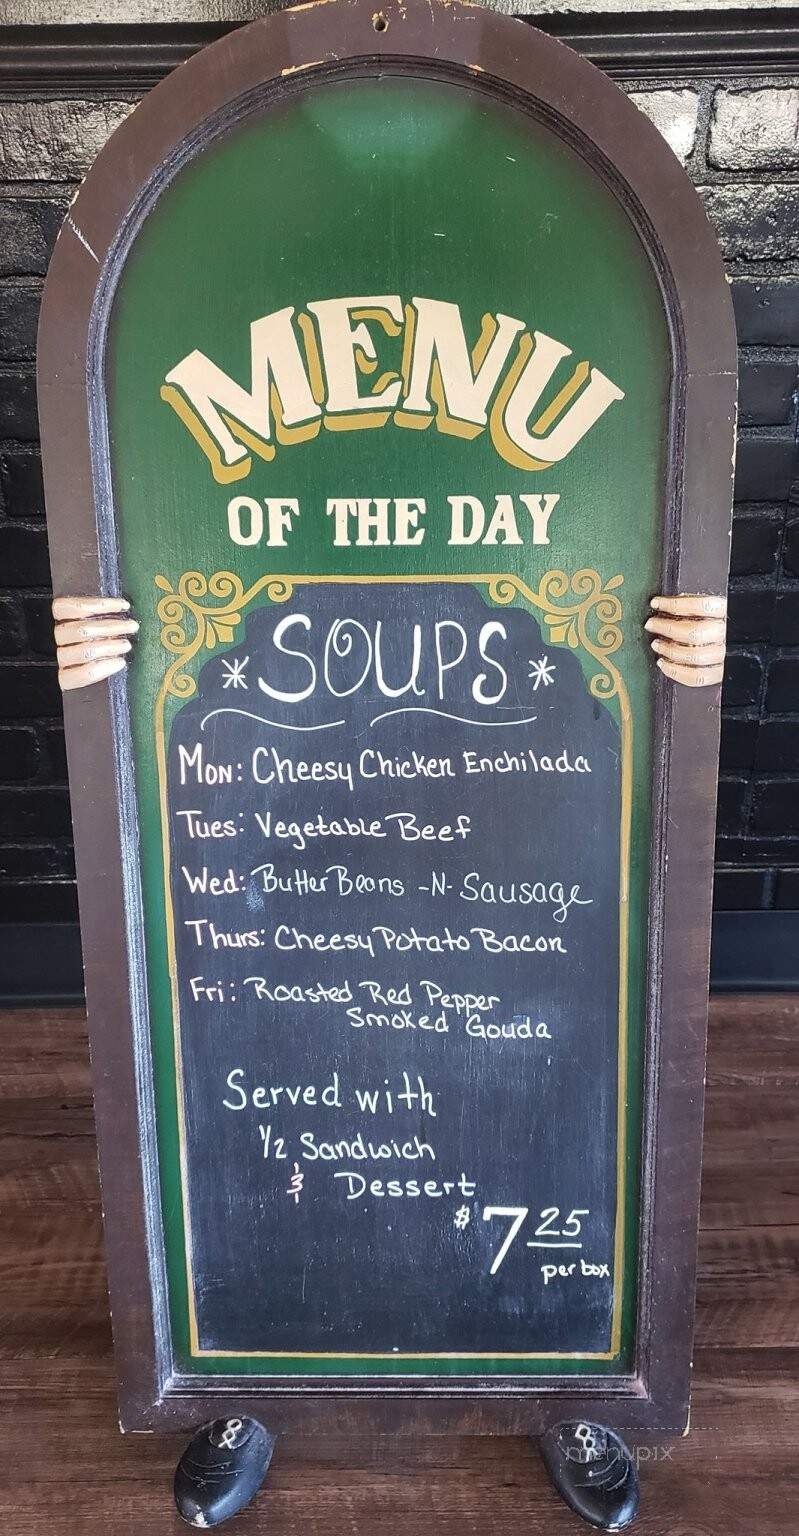 MENU
OF THE DAY
* SOUPS *
Mon: Cheesy Chicken Enchilada
Tues: Vegetable Beef
Wed: Butter Beans -N- Sausage
Thurs: Cheesy Potato Bacon
Fri: Roasted Red Pepper
Smoked Gouda
Served with
1/2 Sandwich
& Dessert
$7 25
per box
menupix